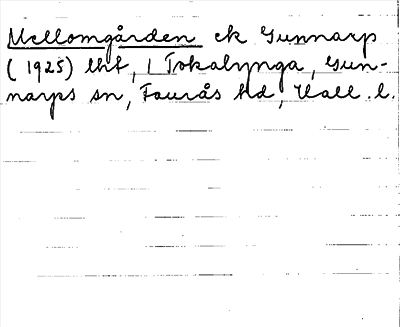 Mellomgården ek Gunnarp
(1925) lht, 1 Tokalynga, Gun-
narps sn, Faurås hd, Hall. l.